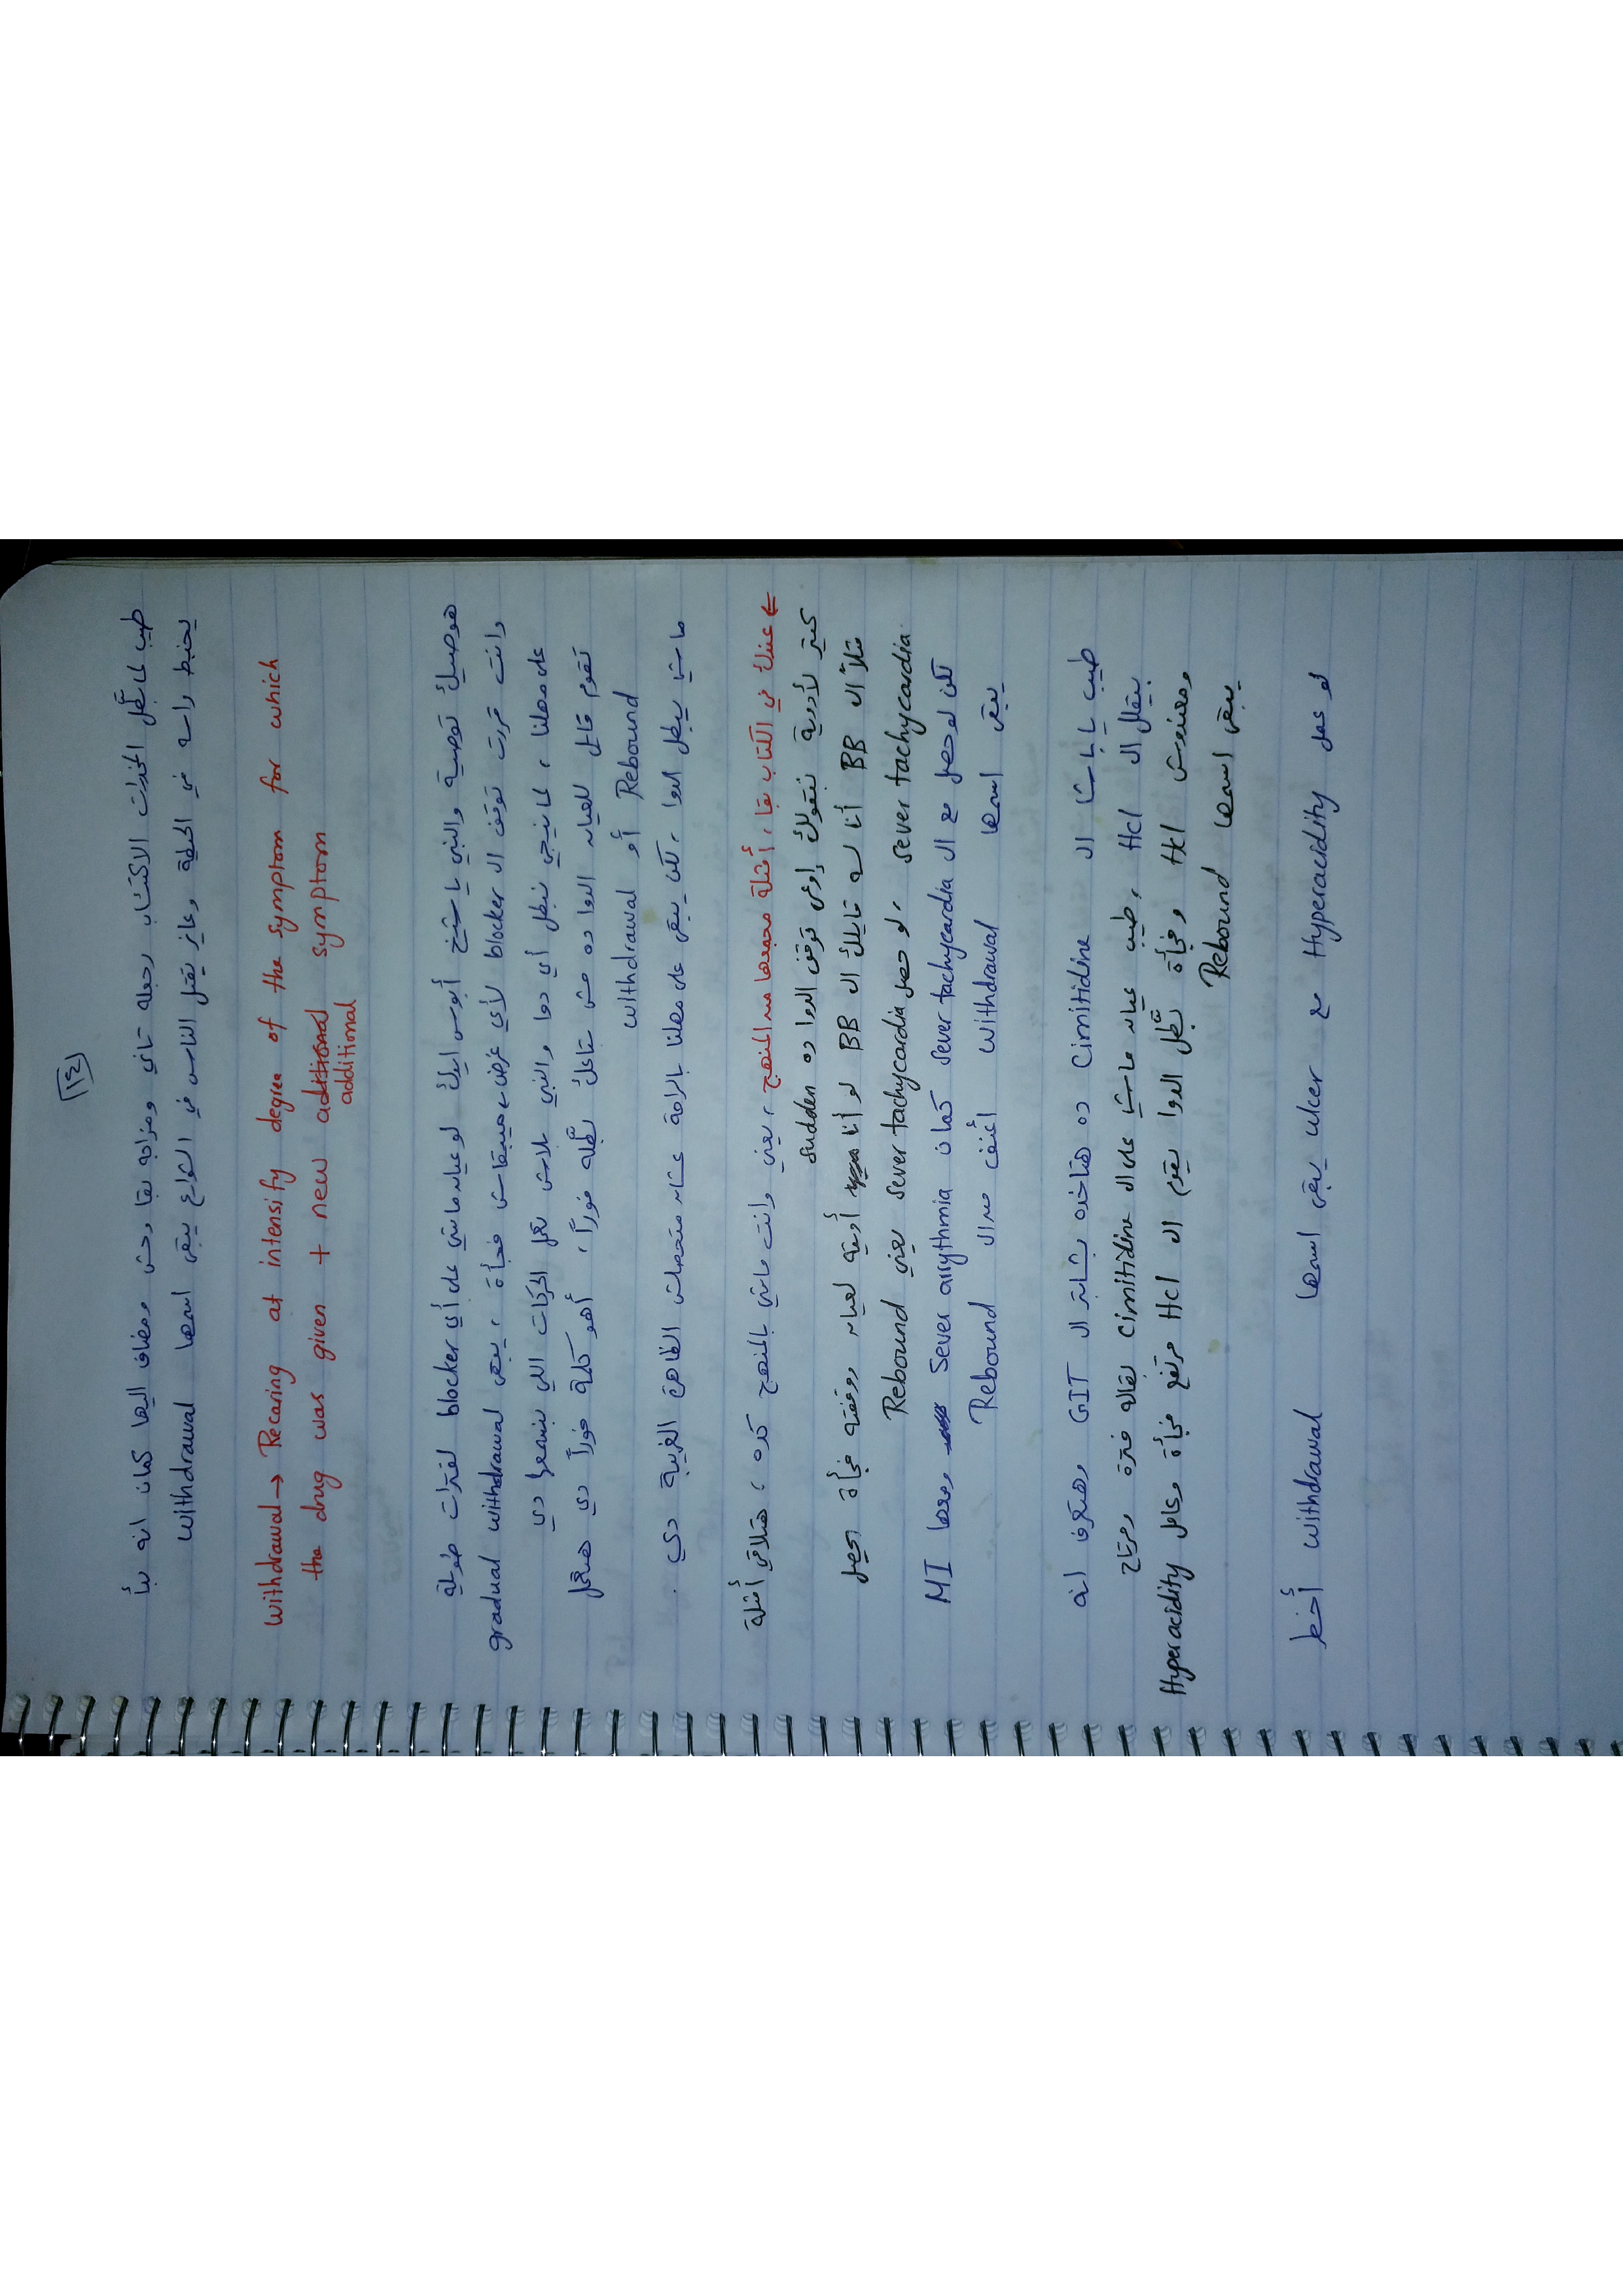 ١٤
طيب لما بطل المخدرات الاكتئاب رجعله تاني ومزاجه بقا وحش ومضاف اليها كمان انه بدأ
يخبط راسه في الحيطة وعايز يقتل الناس في الشوارع يبقى اسمها withdrawal
withdrawal → Recaring at intensify degree of the symptom for which
the drug was given + new additional symptom
additional
هوصيك توصية والنبي يا شيخ أبوس ايدك لو عيان ماشي على أي blocker لفترات طويلة
وانت قررت توقف ال blocker لأي غرض ميبقاش فجأة ، يبقى gradual withdrawal
على مهلنا ، لما نيجي نبطل أي دوا والنبي بلاش نعمل الحركات اللي بنسمعها دي
تقوم قايل للعيان الدوا ده مش بتاعك بطله فوراً ، أهو كلمة فوراً دي هتعمل
withdrawal أو Rebound
ماشي يبطل الدوا ، لكن يبقى على مهلنا بالراحة عشان متحصلش الظاهرة الغريبة دي .
← عندك في الكتاب بقا ، أمثلة مجمعها من المنهج ، يعني وانت ماشي بالمنهج كده ، هتلاقي أمثلة
كتير لأدوية بنقولك إوعى توقف الدوا ده sudden
مثلاً ال BB أنا لسه قايلك ال BB لو أنا أديته لعيان ووقفته فجأة يحصل
sever tachycardia ، لو حصل sever tachycardia يعني Rebound
لكن لو حصل مع ال sever tachycardia كمان Sever arrythmia ومعها MI
يبقى اسمها withdrawal أعنف من ال Rebound
طيب يا باشا ال Cimitidine ده هتاخده بشابتر ال GIT وهتعرف انه
بيقلل ال Hcl ، طيب عيان ماشي على ال Cimitidine بقاله فترة ومرتاح
ومعندوش Hcl وفجأة بطل الدوا يقوم ال Hcl مرتفع فجأة وعامل Hyperacidity
يبقى اسمها Rebound
لو عمل Hyperacidity مع ulcer يبقى اسمها withdrawal أخطر